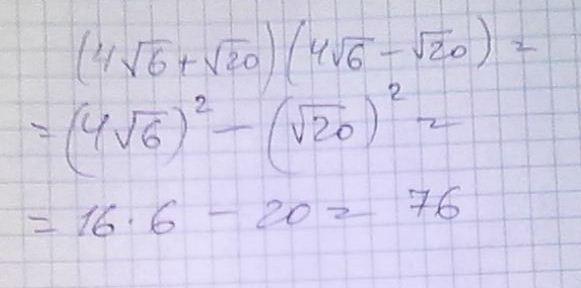 (4√6+√20)(4√6−√20)=
=(4√6)²−(√20)²=
=16·6−20=76